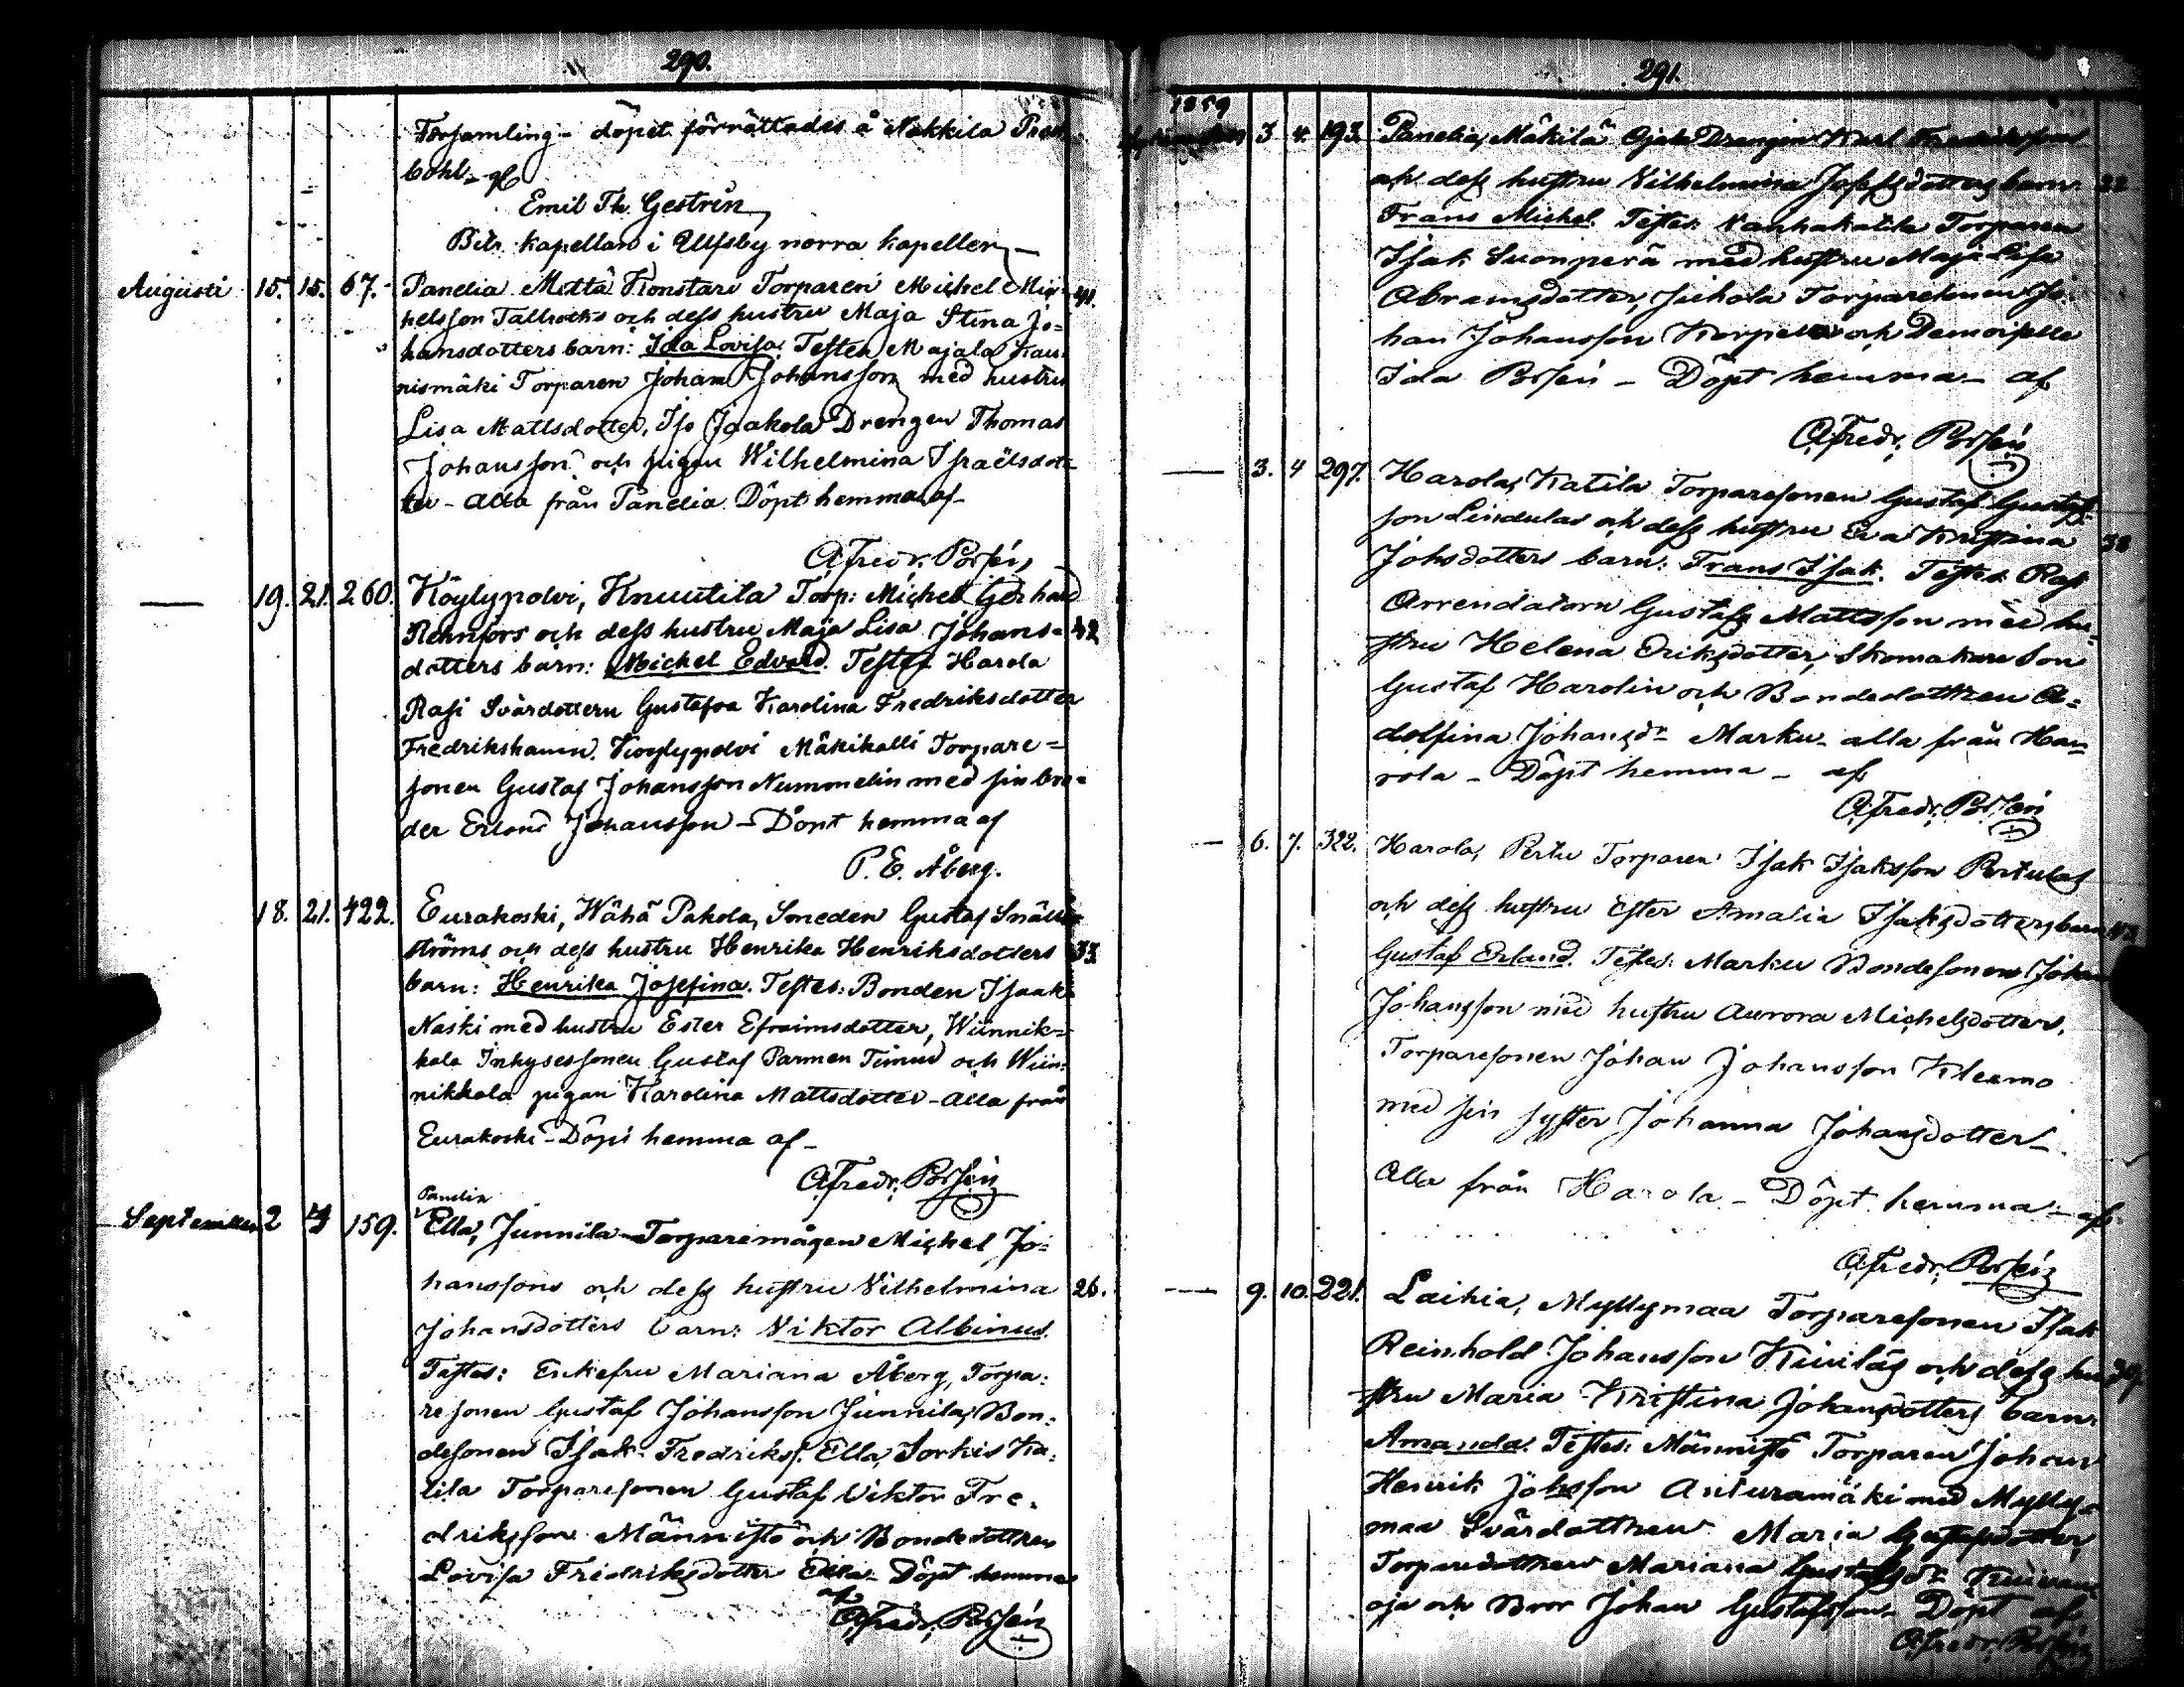 290.
Församling - döpet förrättades å Nakkila Prest
bohl - af
Emil Th. Gestrin
Bitr. kapellan i Ulfsby norra kapeller
Augusti 15. 15. 67. Panelia Mettä Konstari Torparen Michel Mic- 41.
helsson Tallroths och dess hustru Maja Stina Jo=
hansdotters barn: Ida Lovisa. Testes Majala Kau-
nismäki Torparen Johan Johansson med hustru
Lisa Mattsdotter, Iso Jaakola Drengen Thomas
Johansson och pigan Wilhelmina Israëlsdot-
ter - Alla från Panelia. Döpt hemma af -
A. Fredr. Borsén
— 19. 21. 260. Köylypolvi, Knuutila Torp: Michel Gerhard
Rennfors och dess hustru Maja Lisa Johans= 42
dotters barn: Michel Edvard. Testes Harola
Rasi Svärdottern Gustafva Karolina Fredriksdotter
Fredrikshamn. Köylypolvi Mäkikalli Torpare=
sonen Gustaf Johansson Nummelin med sin bro=
der Erland Johansson - Döpt hemma af
P. E. Åberg.
18. 21. 422. Eurakoski, Wähä Pakola, Smeden Gustaf Snäll
ströms och dess hustru Henrika Henriksdotters 33.
barn: Henrika Josefina. Testes: Bonden Isaak
Naski med hustru Ester Efraimsdotter, Wiinnik=
kala Inhysessonen Gustaf Parmen och Wiin=
nikkala pigan Karolina Mattsdotter - Alla från
Eurakoski - Döpt hemma af -
A. Fredr. Borsén
Panelia
September 2 4 159. Ella, Junnila Torparemågen Michel Jo=
hanssons och dess hustru Vilhelmina 26.
Johansdotters barn: Viktor Albinus.
Testes: Enkefru Mariana Åberg, Torpa=
resonen Gustaf Johansson Junnila, Bon=
desonen Isak Fredrikss. Ella, Sorkis Ka=
tila Torparesonen Gustaf Viktor Fre=
driksson Männistö och Bondedottren
Lovisa Fredriksdotter Ella - Döpt hemma
af
A. Fredr. Borsén
291.
1859
September 3 4. 193. Panelia, Mäkilä Drengen Karl Fredriksson
och dess hustru Vilhelmina Josefsdotters barn: 22
Frans Michel. Testes: Vanhakatila Torparen
Isak Suonperä med hustru Maja Lisa
Abramsdotter, Juhola Torparesonen Jo-
han Johansson Korpela och Demoiselle
Ida Borsén - Döpt hemma - af
A. Fredr. Borsén
— 3. 4 297. Harola, Katila Torparesonen Gustaf Gustafs-
son Lindulas och dess hustru Eva Kristina 38
Johsdotters barn: Frans Isak. Testes: Rasi
Arrendatorn Gustaf Mattsson med hu-
stru Helena Eriksdotter, Skomakare Son
Gustaf Harolin och Bondedottren A=
dolfina Johansdr Marku - alla från Ha=
rola - Döpt hemma - af
A. Fredr. Borsén
— 6. 7. 322. Harola, Pertu Torparen Isak Isaksson Pertulas
och dess hustru Ester Amalia Isaksdotters barn 43
Gustaf Erland. Testes: Marku Bondesonen Johan
Johansson med hustru Aurora Michelsdotter,
Torparesonen Johan Johansson Kleemo
med sin syster Johanna Johansdotter -
Alla från Harola - Döpt hemma - af
A. Fredr. Borsén
— 9. 10. 221. Laihia, Myllymaa Torparesonen Isak
Reinhold Johansson Kiviläs och dess hu 39.
stru Maria Kristina Johansdotters barn:
Amanda. Testes: Männistö Torparen Johan
Henrik Johsson Anturamäki med Mylly=
maa Svärdottren Maria Gustafsdotter,
Torparedottren Mariana Gustafsdr
oja och Bror Johan Gustafsson - Döpt af
A. Fredr. Borsén